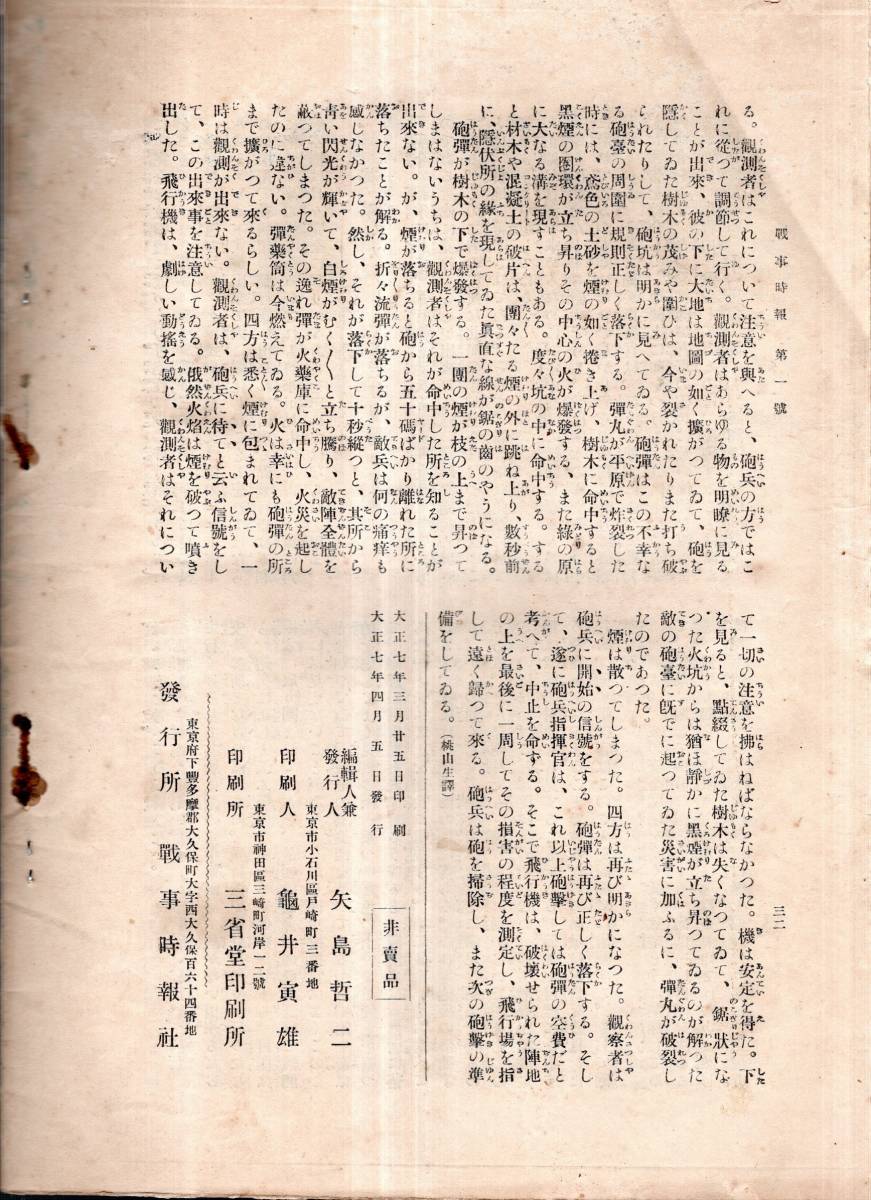 戰事時報第一號
三二
る。觀測者はこれについて注意を與へると、砲兵の方ではこ
れに從つて調節して行く。觀測者はあらゆる物を明瞭に見る
ことが出來、彼の下に大地は地圖の如く擴がつてゐて、砲を
隱してゐた樹木の茂みや圍ひは、今や裂かれたりまた打ち破
られたりして、砲坑は明かに見へてゐる。砲彈はこの不幸な
る砲臺の周圍に規則正しく落下する。彈丸が平原で炸裂した
時には、鳶色の土砂を煙の如く捲き上げ、樹木に命中すると
黑煙の圏環が立ち昇りその中心の火が爆發する、また綠の原
に大なる溝を現すこともある。度々坑の中に命中する。する
と材木や混凝土の破片は、團々たる煙の外に跳ね上り、數秒前
に、隱伏所の緣を現してゐた眞直な線が鋸の齒のやうになる。
砲彈が樹木の下で爆發する。一團の煙が枝の上まで昇つて
しまはないうちは、觀測者はそれが命中した所を知ることが
出來ない。が、煙が落ちると砲から五十碼ばかり離れた所に
落ちたことが解る。折々流彈が落ちるが、敵兵は何の痛痒も
感じなかつた。然し、それが落下して十秒縱つと、其所から
靑い閃光が輝いて、白煙がむく〱と立ち騰り、敵陣全體を
蔽つてしまつた。その逸れ彈が火藥庫に命中し、火災を起し
たのに違ない。彈藥筒は今燃えてゐる。火は幸にも砲彈の所
まで擴がつて來るらしい。四方は悉く煙に包まれてゐて、一
時は觀測が出來ない。觀測者は、砲兵に待てと云ふ信號をし
て、この出來事を注意してゐる。俄然火焰は煙を破つて噴き
出した。飛行機は、劇しい動搖を感じ、觀測者はそれについ
て一切の注意を拂はねばならなかつた。機は安定を得た。下
を見ると、點綴してゐた樹木は失くなつてゐて、鋸狀にな
つた火坑からは猶ほ靜かに黑煙が立ち昇つてゐるのが解つた
敵の砲臺に旣でに起つてゐた災害に加ふるに、彈丸が破裂し
たのであつた。
煙は散つてしまつた。四方は再び明かになつた。觀察者は
砲兵に開始の信號をする。砲彈は再び正しく落下する。そし
て、遂に砲兵指揮官は、これ以上砲擊しては砲彈の空費だと
考へて、中止を命ずる。そこで飛行機は、破壞せられた陣地
の上を最後に一周してその損害の程度を測定し、飛行場を指
して遠く歸つて來る。砲兵は砲を掃除し、また次の砲擊の準
備をしてゐる。(桃山生譯)
大正七年三月廿五日印刷
大正七年四月五日發行
非賣品
編輯人兼
發行人 矢島哲二
東京市小石川區戸崎町三番地
印刷人 龜井寅雄
東京市神田區三崎町河岸一二號
印刷所 三省堂印刷所
東京府下豐多摩郡大久保町大字西大久保百六十四番地
發行所 戰事時報社